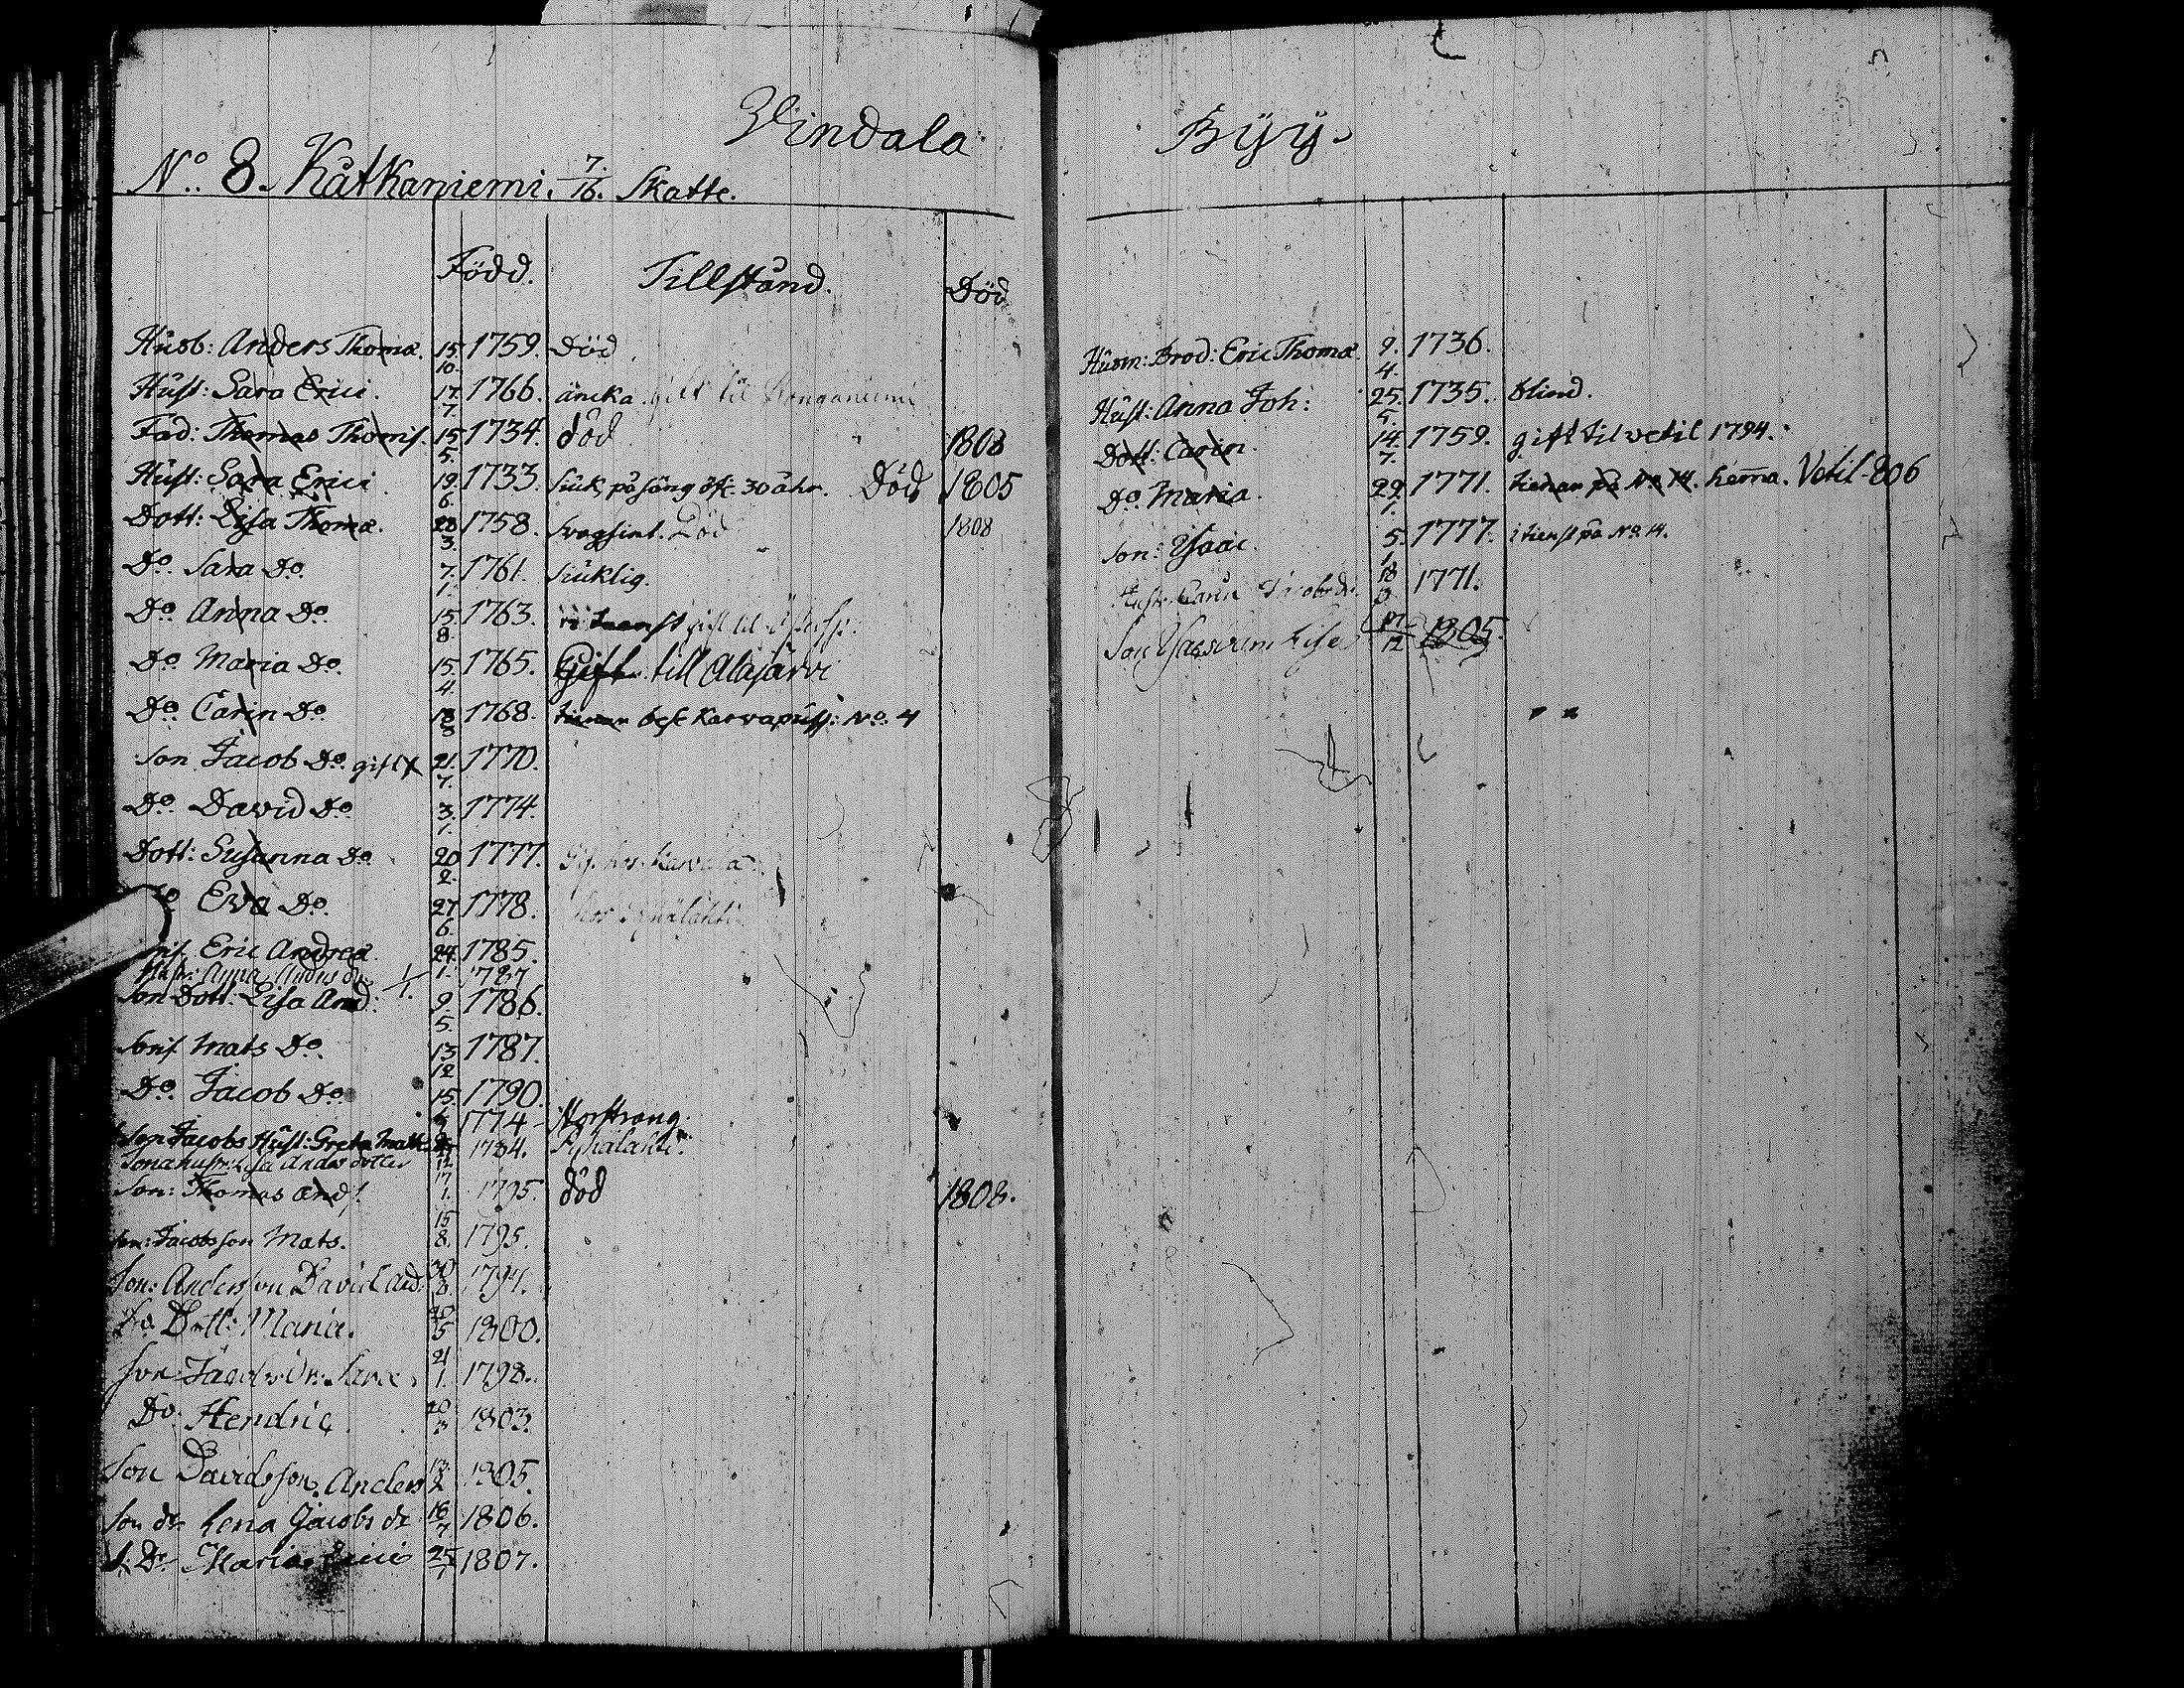 Vindala
N:o 8. Kåtkaniemi. 7/16. Skatte.
Född. Tillstånd. Död
Husb: Anders Thomæ. 15/10. 1759. Död
Hust: Sara Erici. 17/7. 1766. äncka. gift til
Fad: Thomas Thomiss. 15/5. 1734. död 1808
Hust: Sara Erici 19/6. 1733. siuk på säng öfr 30 åhr. Död 1805
Dott: Lisa Thomæ. 28/3. 1758. svagsint. Död 1808
D:o Sara D:o 7/1. 1761. siuklig.
D:o Anna D:o 15/8. 1763. gift til
D:o Maria D:o 15/4. 1765. Gift till Alajärvi
D:o Carin D:o 18/8 1768. tienar N:o 4
Son Jacob D:o gift 21/7. 1770.
D:o David D:o 3/1. 1774.
Dott: Susanna D:o 20/2. 1777.
D:o Eva D:o 27/6. 1778.
Eric Andreæ 24/1. 1785.
Anna Anders dr 1/1. 1787
Son Dott: Lisa And: 9/5. 1786.
Sons Mats D:o 13/12 1787.
D:o Jacob D:o 15. 1790.
Son Jacobs Hust: Greta Matts 1774 Norstrang.
Sonahustr: Lisa Anders dotter 1784. Pyhälahti.
Son: Thomas And:s. 17/1. 1795. död 1808.
Son: Jacobs son Mats. 15/8. 1795.
Son: Anders son David And. 30/8. 1797.
D:o Dott: Maria. 20/5 1800.
Son Jacobs Dr: 21/1. 1798.
D:o Hendric. 20/3 1803.
Son Davids son. Anders 13/2 1805.
Son dr Lena Jacobs dr 16/7 1806.
S: Dr Maria Erici 25/1 1807.
Byÿ.
Husm: Brod: Eric Thomæ. 9/4. 1736.
Hust: Anna Joh: 25/5. 1735. blind.
Dott: Carin. 14/7. 1759. gift til vetil 1794.
D:o Maria. 29/1. 1771. tienar på N:o 14. hema. Vetil 806
Son: Ysaac. 5/1 1777. i tienst på N:o 14.
Hustr. Carin Jacobs dr. 18 1771.
Son 17/12 1805.